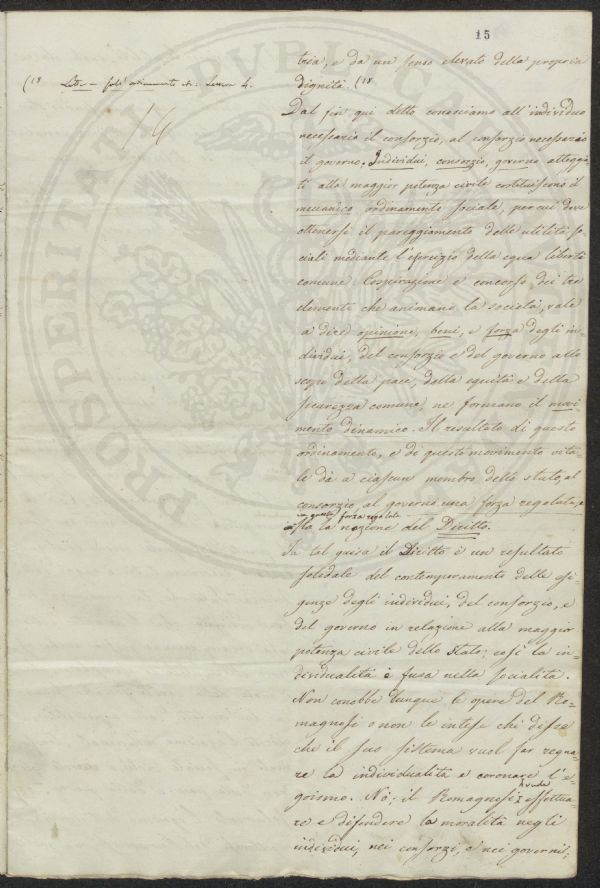 15
tria, e da un senso elevato della propria
dignità. (18
(18 Lett – Lezion 4.
14
Dal fin qui detto conosciamo all'individuo
necessario il consorzio, al consorzio necessario
il governo. Individui, consorzio, governo atteggia
ti alla maggior potenza civile costituiscono il
meccanico ordinamento sociale, per cui deve
ottenersi il pareggiamento delle utilità so
ciali mediante l'esercizio della equa libertà
comune Cospirazione e concorso dei tre
elementi che animano la società, vale
a dire opinione, beni, e forza degli in
dividui, del consorzio e del governo allo
scopo della pace, della equità e della
sicurezza comune, ne formano il movi
mento dinamico. Il resultato di questo
ordinamento, e di questo movimento vita
le dà a ciascun membro dello stato, al
consorzio, al governo una forza regolata, e
in questa forza regolata
sta la nozione del Diritto.
In tal guisa il Diritto è un resultato
soledale del contemperamento delle esi
genze degli individui, del consorzio, e
del governo in relazione alla maggior
potenza civile dello Stato; così la in
dividualità è fusa nella socialità.
Non conobbe dunque le opere del Ro
magnosi o non le intese chi disse
che il suo sistema vuol far regna
re la individualità e coronare l'e
goismo. Nò; il Romagnosi effettua
re e difendere la moralità negli
individui, nei consorzi, e nei governi;
PROSPERITATI PVBLICAE